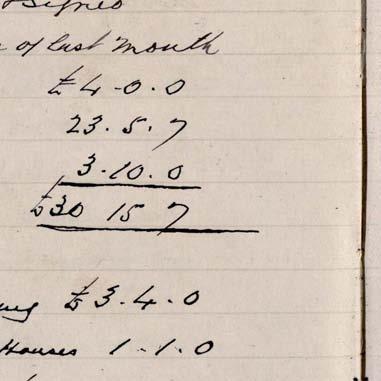 Signed
of last month
£4.0.0
23.5.7
3.10.0
£30 15 7
£3.4.0
Houses 1.1.0